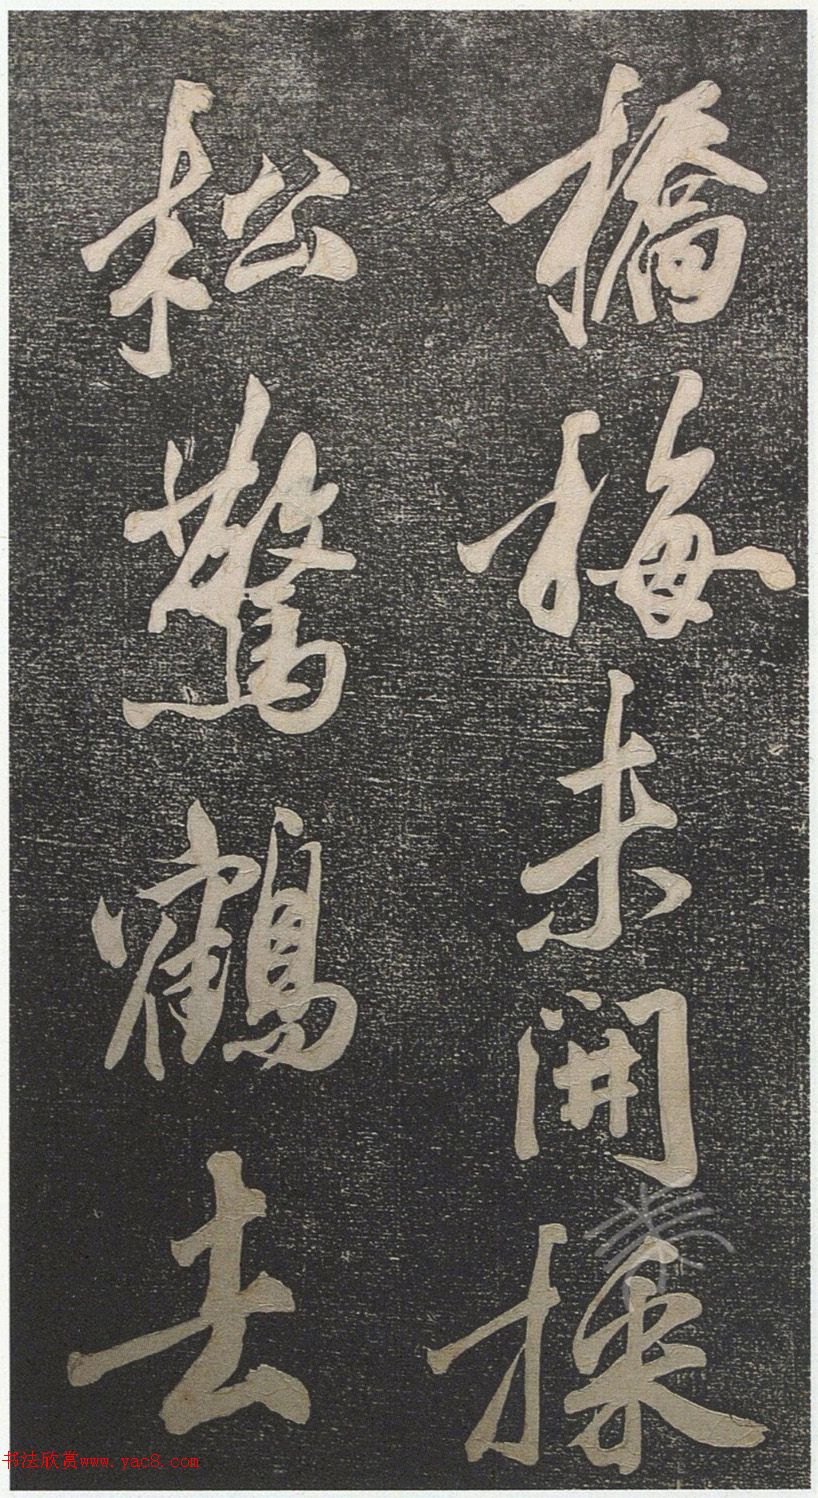 橋梅未開採
松驚鶴去
书法欣赏www.yac8.com